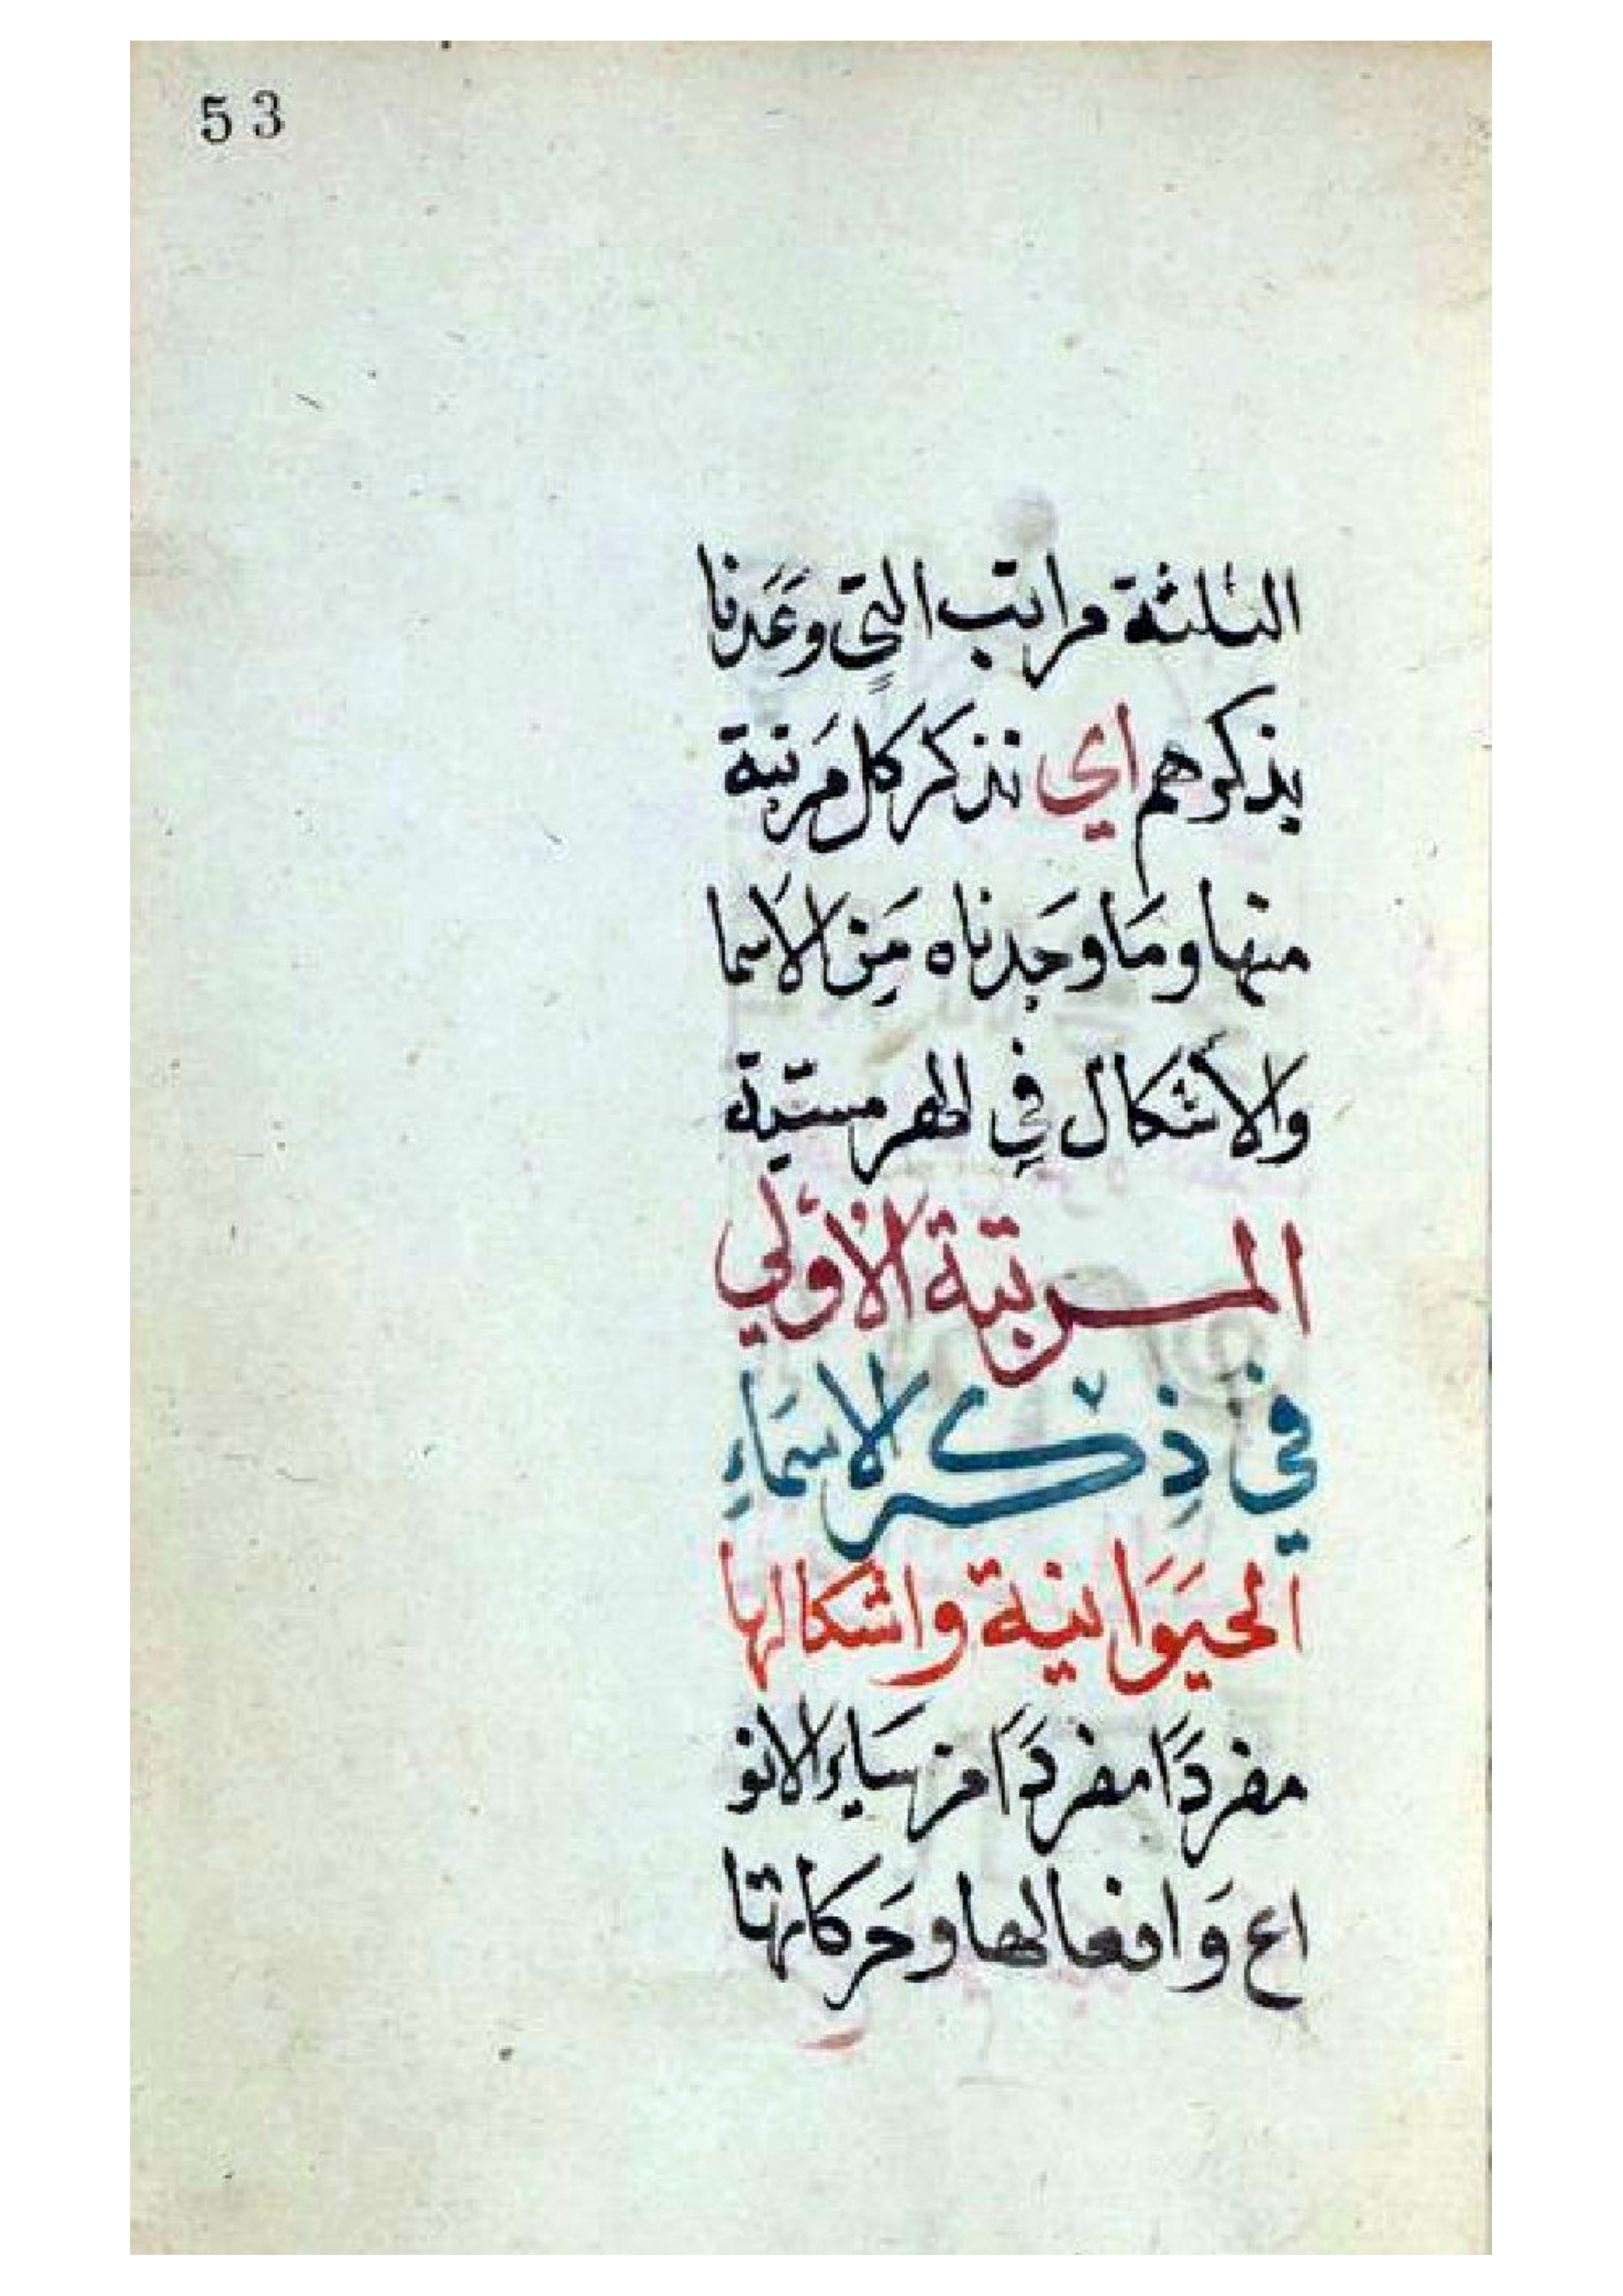 53
الثلثة مراتب التي وَعَدنا
بذكرهم اي نذكر كل مَرتبة
منها وَمَا وَجَدناه مَِن الاسَما
والأشكال فِي الهرمسيّة
المرتبة الاُوّلي
في ذِكر الاسمَاءِ
الحيَوَانية واشكالها
مفردًا مفردًا من سَاير الانو
اع وَافعالها وحَركاتها